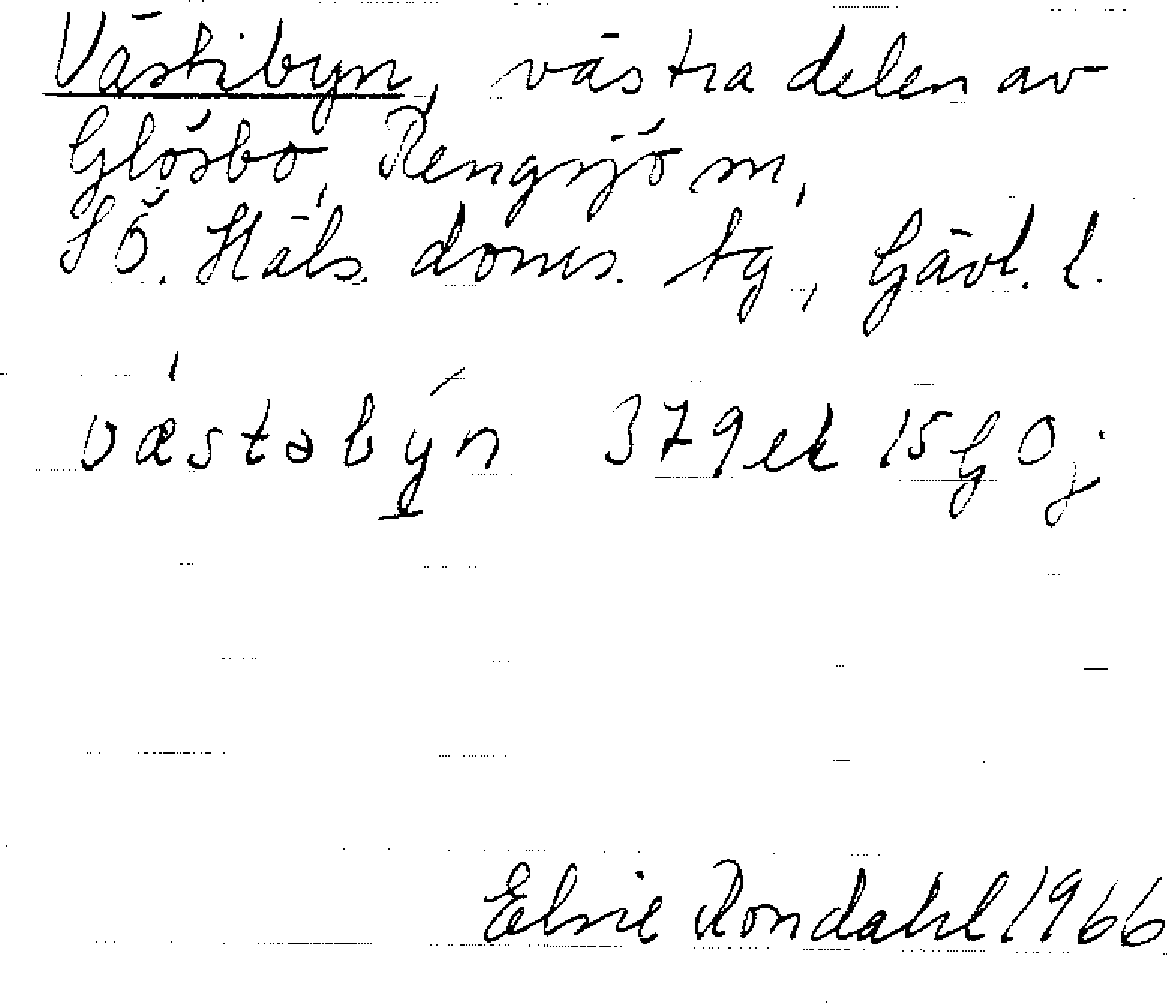 Västibyn, västra delen av
Glösbo, Rengsjö sn,
SÖ. Häls. doms. tg., Gävl. l.
väst byn 379 ek 15 G 0 j
Elsie Rondahl 1966